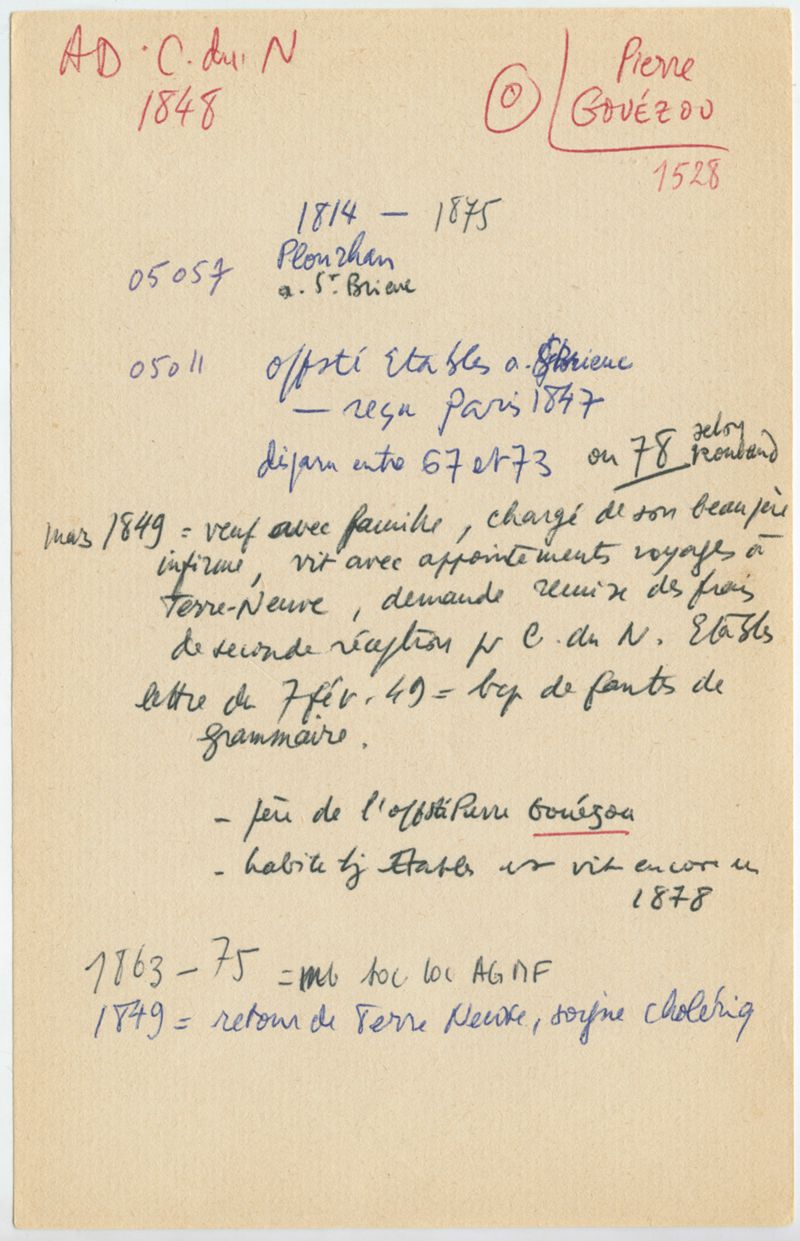 AD. C. du. N
1848
Pierre
GOUÉZOU
1528
1814 — 1875
05057 Plourhan
a. St. Brieuc
05011 offsté Etables a. StBrieuc
— reçu Paris 1847
disparu entre 67 et 73 ou 78 selon
mars 1849 = veuf avec famille, chargé de son beau père
infirme, vit avec appointements voyages à
Terre-Neuve, demande remise des frais
de seconde réception pr C. du N. Etables
lettre du 7 fév. 49 = bcp de fautes de
grammaire.
- père de l'offsté Pierre Gouézou
- habite tj Etables et vit encore en
1878
1863 - 75 = mb soc loc AGMF
1849 = retour de Terre Neuve, soigne choleriq